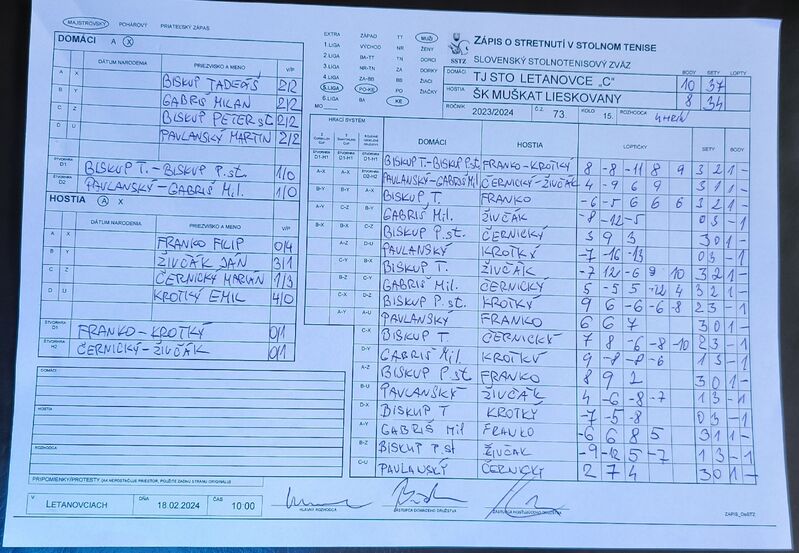 MAJSTROVSKÝ POHÁROVÝ PRIATEĽSKÝ ZÁPAS
DOMÁCI A X
DÁTUM NARODENIA PRIEZVISKO A MENO V/P
A X BISKUP TADEÁŠ 2/2
B Y GABRIŠ MILAN 2/2
C Z BISKUP PETER st. 2/2
D U PAVLANSKÝ MARTIN 2/2
ŠTVORHRA D1 BISKUP T. - BISKUP P. st. 1/0
ŠTVORHRA D2 PAVLANSKÝ - GABRIŠ Mil. 1/0
HOSTIA A X
DÁTUM NARODENIA PRIEZVISKO A MENO V/P
A X FRANKO FILIP 0/4
B Y ŽIVČÁK JÁN 3/1
C Z ČERNICKÝ MARIÁN 1/3
D U KROTKÝ EMIL 4/0
ŠTVORHRA FRANKO - KROTKÝ 0/1
ŠTVORHRA H2 ČERNICKÝ - ŽIVČÁK 0/1
DOMÁCI
HOSTIA
ROZHODCA
PRIPOMIENKY/PROTESTY (AK NEPOSTAČUJE PRIESTOR, POUŽITE ZADNÚ STRANU ORIGINÁLU)
V LETANOVCIACH DŇA 18.02.2024 ČAS 10:00
HLAVNÝ ROZHODCA ZÁSTUPCA DOMÁCEHO DRUŽSTVA ZÁSTUPCA HOSŤUJÚCEHO DRUŽSTVA
EXTRA ZÁPAD TT MUŽI
1.LIGA VÝCHOD NR ŽENY
2.LIGA BA-TT TN DORCI
3.LIGA NR-TN ZA DORKY
4.LIGA ZA-BB BB ŽIACI
5.LIGA PO-KE PO ŽIAČKY
6.LIGA BA KE
MO
SSTZ
ZÁPIS O STRETNUTÍ V STOLNOM TENISE
SLOVENSKÝ STOLNOTENISOVÝ ZVÄZ
BODY SETY LOPTY
DOMÁCI TJ STO LETANOVCE „C" 10 37
HOSTIA ŠK MUŠKÁT LIESKOVANY 8 34
ROČNÍK 2023/2024 Č.Z. 73. KOLO 15. ROZHODCA
HRACÍ SYSTÉM DOMÁCI HOSTIA LOPTIČKY SETY BODY
D1-H1 D1-H1 D1-H1 BISKUP T. - BISKUP P. st. FRANKO - KROTKÝ 8 -8 -11 8 9 3 2 1 -
A-X A-X D2-H2 PAVLANSKÝ - GABRIŠ Mil. ČERNICKÝ - ŽIVČÁK 4 -9 6 9 3 1 1 -
B-Y B-Y A-X BISKUP T. FRANKO -6 -5 6 6 6 3 2 1 -
A-Y C-Z B-Y GABRIŠ Mil. ŽIVČÁK -8 -12 -5 0 3 - 1
B-X B-X C-Z BISKUP P. st. ČERNICKÝ 3 9 3 3 0 1 -
A-Z D-U PAVLANSKÝ KROTKÝ -7 -16 -13 0 3 - 1
B-Z A-Y BISKUP T. ŽIVČÁK -7 12 -6 9 10 3 2 1 -
C-Y B-Z GABRIŠ Mil. ČERNICKÝ 5 -5 5 -12 4 3 2 1 -
C-X D-Z BISKUP P. st. KROTKÝ 9 6 -6 -6 -8 2 3 - 1
A-Y A-U PAVLANSKÝ FRANKO 6 6 7 3 0 1 -
C-X BISKUP T. ČERNICKÝ 7 8 -6 -8 -10 2 3 - 1
D-Y GABRIŠ Mil. KROTKÝ 9 -8 -8 -6 1 3 - 1
A-Z BISKUP P. st. FRANKO 8 9 2 3 0 1 -
B-U PAVLANSKÝ ŽIVČÁK 4 -6 -8 -7 1 3 - 1
D-X BISKUP T KROTKÝ -7 -5 -8 0 3 - 1
A-Y GABRIŠ Mil FRANKO -6 6 8 5 3 1 1 -
B-Z BISKUP P. st ŽIVČÁK -9 -12 5 -7 1 3 - 1
C-U PAVLANSKÝ ČERNICKÝ 2 7 4 3 0 1 -
ZÁPIS_OsSTZ